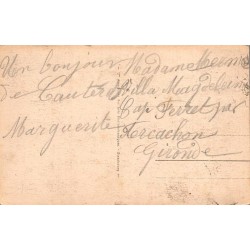 Un bonjour
de Cauterets
Marguerite
Madame
Villa Magdeleine
Cap Ferret par
Arcachon
Gironde